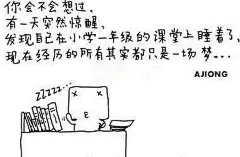 你会不会想过，
有一天突然惊醒，
发现自己在小学一年级的课堂上睡着了，
现在经历的所有其实都只是一场梦...
AJIONG
zzzzz...